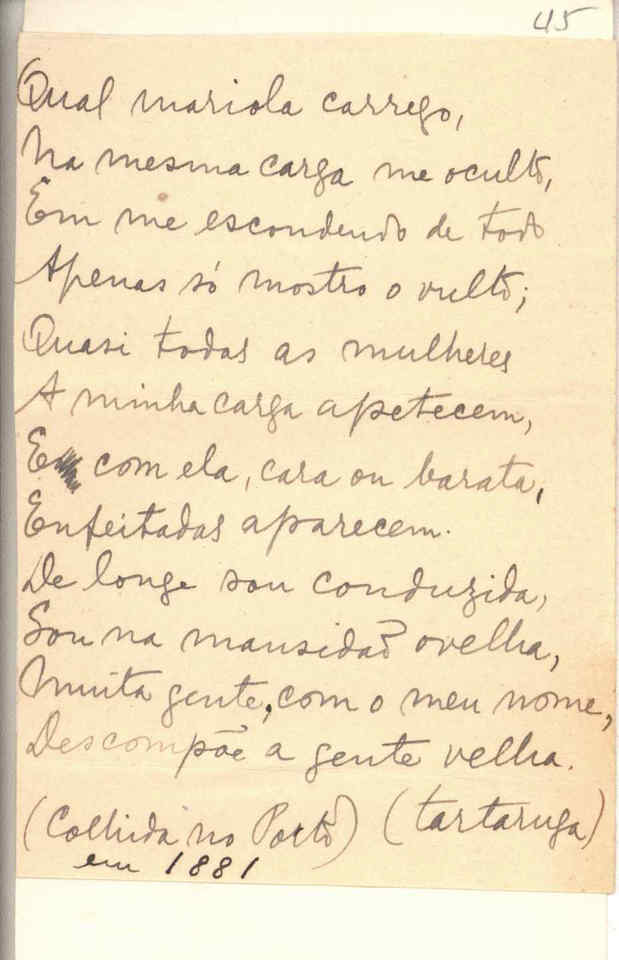 45
Qual mariola carrego,
Na mesma carga me oculto,
Em me escondendo de todo
Apenas só mostro o vulto;
Quasi todas as mulheres
A minha carga apetecem,
E com ela, cara ou barata,
Enfeitadas aparecem.
De longe sou conduzida,
Sou na mansidão ovelha,
Muita gente, com o meu nome,
Descompõe a gente velha.
(Colhida no Porto) (tartaruga)
em 1881